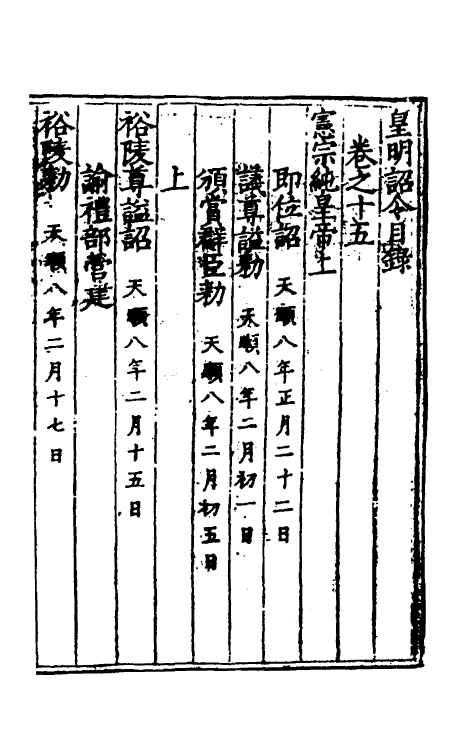 皇明詔令目錄
卷之十五
憲宗純皇帝上
即位詔　天順八年正月二十二日
議尊謚勑　天順八年二月初一日
頒賞群臣勑　天順八年二月初五日
上
裕陵尊謚詔　天順八年二月十五日
諭禮部營建
裕陵勑　天順八年二月十七日